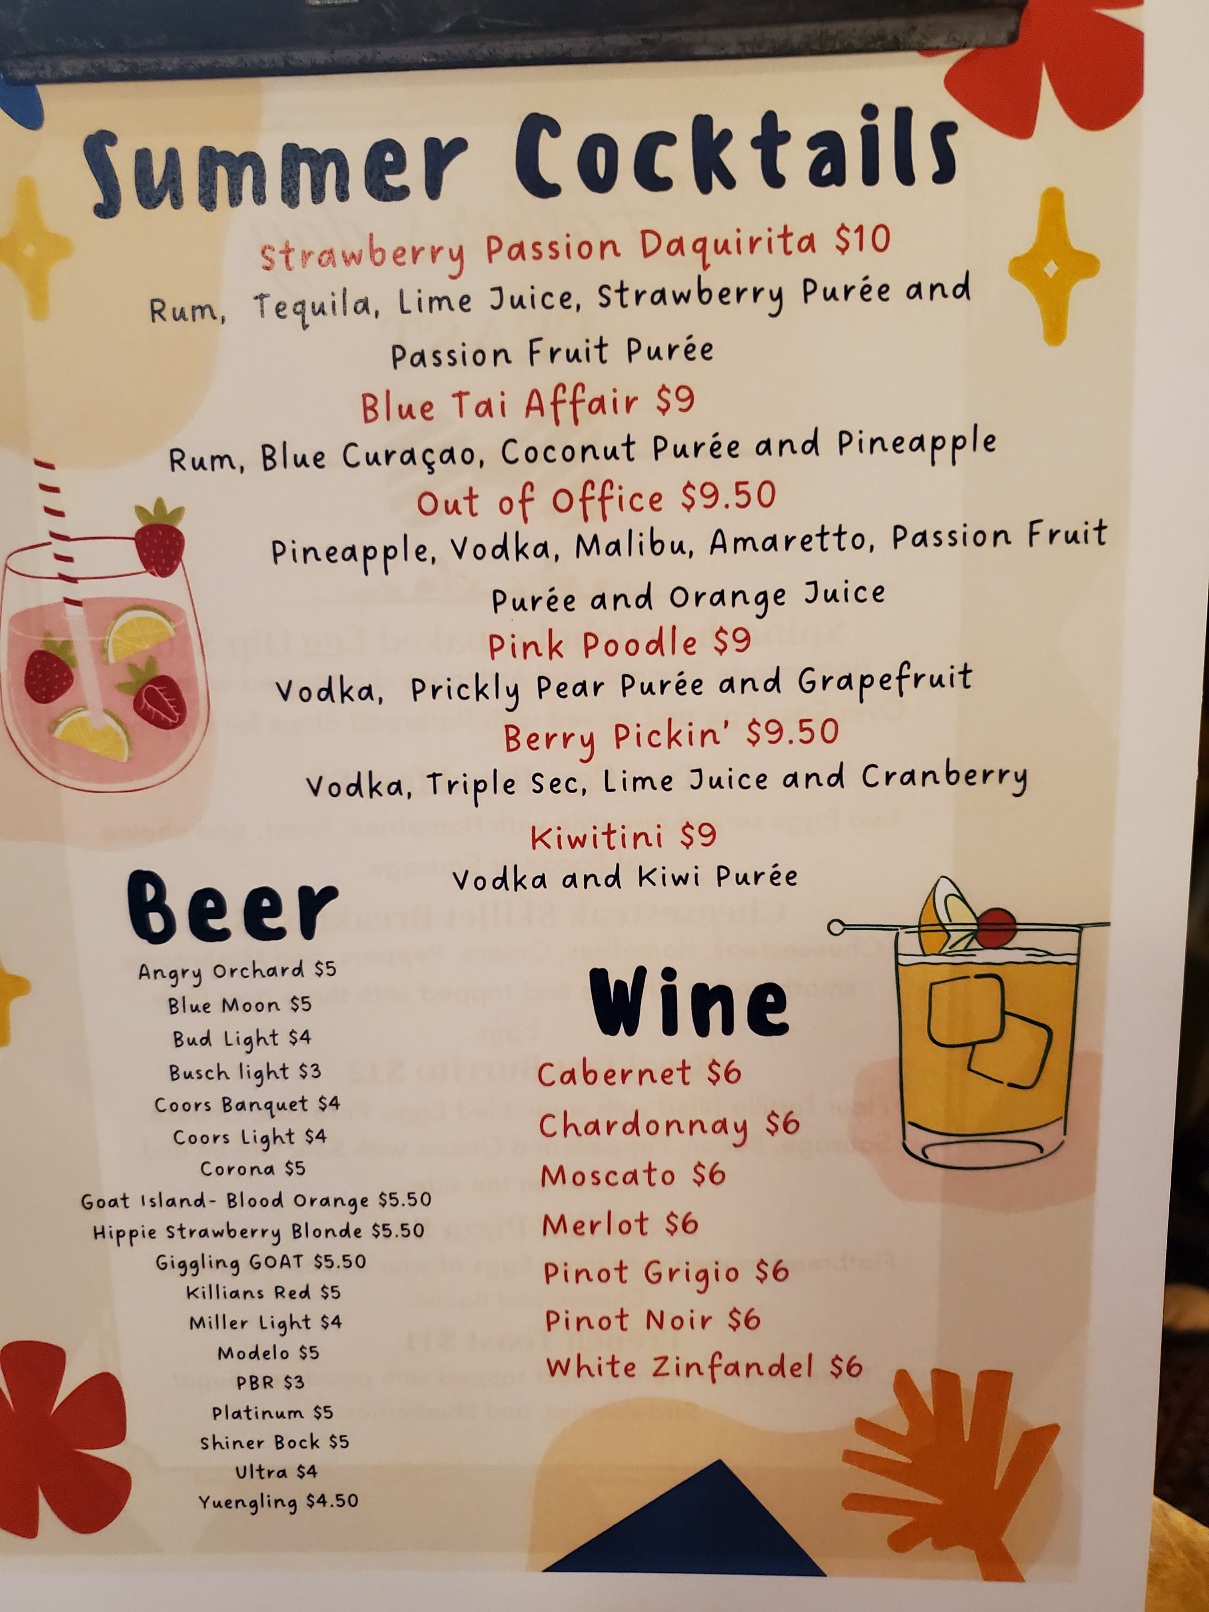 Summer Cocktails
Strawberry Passion Daquirita $10
Rum, Tequila, Lime Juice, Strawberry Purée and
Passion Fruit Purée
Blue Tai Affair $9
Rum, Blue Curaçao, Coconut Purée and Pineapple
Out of Office $9.50
Pineapple, Vodka, Malibu, Amaretto, Passion Fruit
Purée and Orange Juice
Pink Poodle $9
Vodka, Prickly Pear Purée and Grapefruit
Berry Pickin' $9.50
Vodka, Triple Sec, Lime Juice and Cranberry
Kiwitini $9
Vodka and Kiwi Purée
Beer
Angry Orchard $5
Blue Moon $5
Bud Light $4
Busch light $3
Coors Banquet $4
Coors Light $4
Corona $5
Goat Island- Blood Orange $5.50
Hippie Strawberry Blonde $5.50
Giggling GOAT $5.50
Killians Red $5
Miller Light $4
Modelo $5
PBR $3
Platinum $5
Shiner Bock $5
Ultra $4
Yuengling $4.50
Wine
Cabernet $6
Chardonnay $6
Moscato $6
Merlot $6
Pinot Grigio $6
Pinot Noir $6
White Zinfandel $6